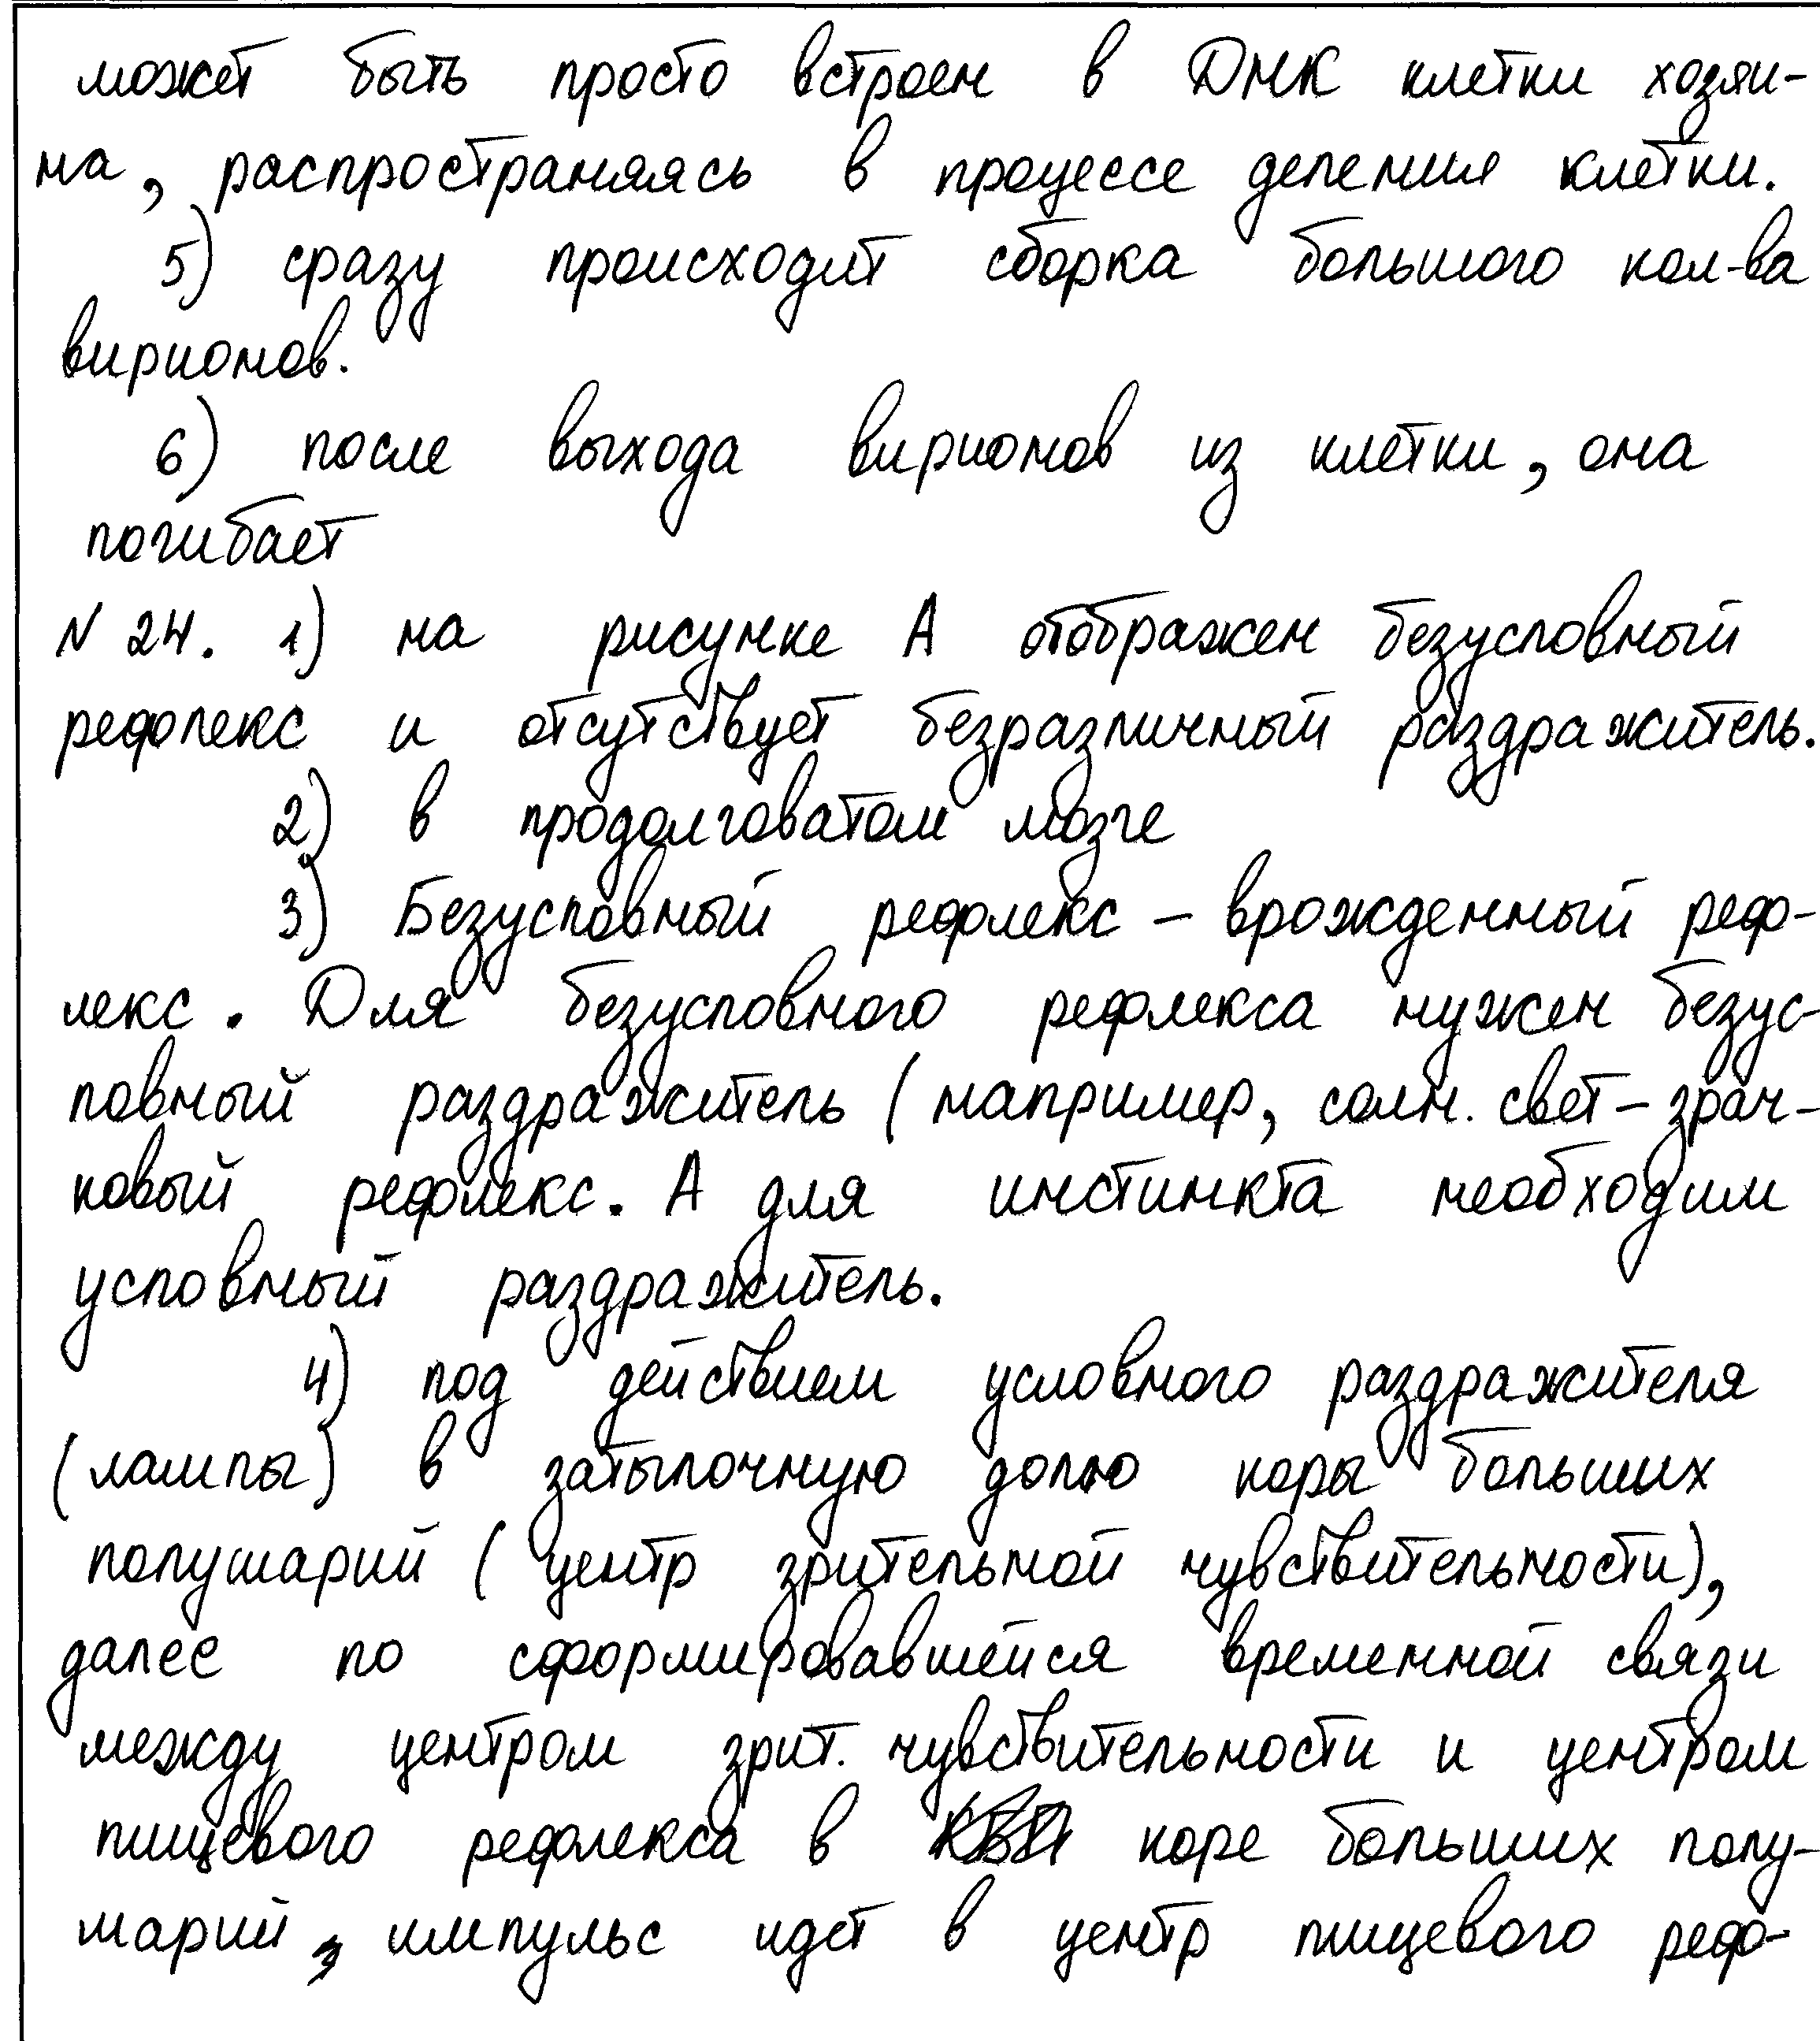 может быть просто встроен в ДНК клетки хозяи-
на, распространяясь в процессе деления клетки.
5) сразу происходит сборка большого кол-ва
вирионов.
6) после выхода вирионов из клетки, она
погибает
N 24. 1) на рисунке А отображен безусловный
рефлекс и отсутствует безразличный раздражитель.
2) в продолговатом мозге
3) Безусловный рефлекс – врожденный реф-
лекс. Для безусловного рефлекса нужен безус-
ловный раздражитель (например, солн. свет – зрач-
ковый рефлекс. А для инстинкта необходим
условный раздражитель.
4) под действием условного раздражителя
(лампы) в затылочную долю коры больших
полушарий (центр зрительной чувствительности),
далее по сформировавшейся временной связи
между центром зрит. чувствительности и центром
пищевого рефлекса в коре больших полу-
шарий, импульс идет в центр пищевого реф-